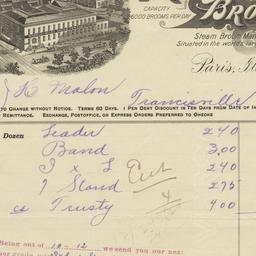 CAPACITY
6000 BROOMS PER DAY
BRO
Steam Broom Man
Situated in the world's larg
Paris, Il
Malon
Francisville
TO CHANGE WITHOUT NOTICE. TERMS 60 DAYS. 1 PER CENT DISCOUNT IN TEN DAYS FROM DATE OF IN
REMITTANCE. EXCHANGE, POSTOFFICE, OR EXPRESS ORDERS PREFERRED TO CHECKS
Dozen Leader 240
Band 3.00
1 x L 240
Cut
1 Stand 275
4
Trusty 400
Being out of 10-12 we send you our nex